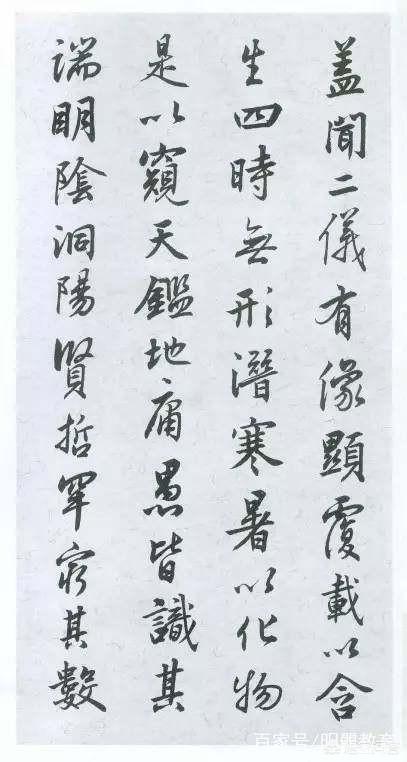 盖聞二儀有像顯覆載以含
生四時無形潛寒暑以化物
是以窺天鑑地庸愚皆識其
端明陰洞陽賢哲罕窮其數
百家号/昭昭教育